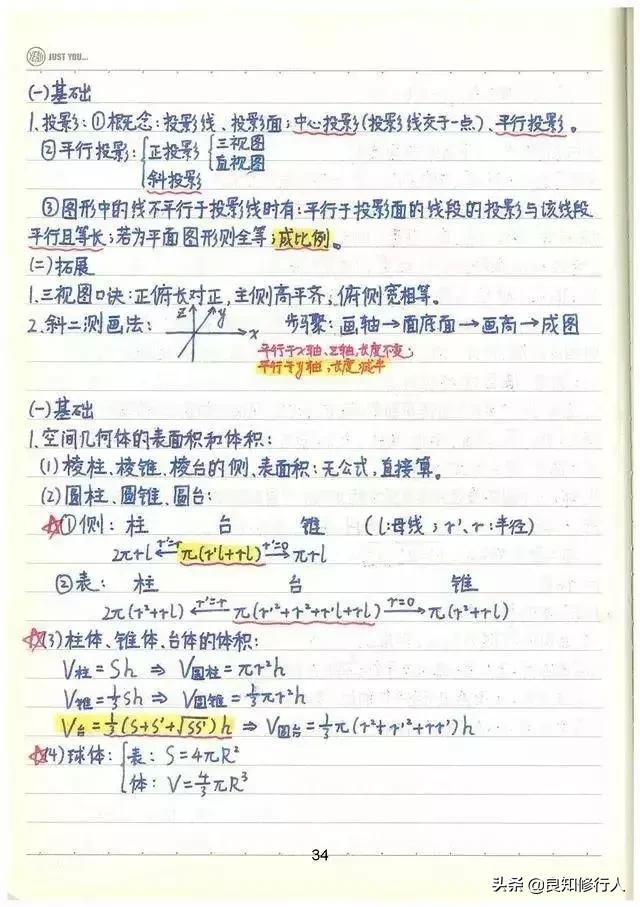 JUST YOU...
(一)基础
1.投影:①概念:投影线、投影面;中心投影(投影线交于一点)、平行投影。
②平行投影:{正投影{三视图
直视图
斜投影
③图形中的线不平行于投影线时有:平行于投影面的线段的投影与该线段
平行且等长;若为平面图形则全等;成比例。
(二)拓展
1.三视图口诀:正俯长对正,主侧高平齐,俯侧宽相等。
2.斜二测画法: z y x 步骤:画轴→画底面→画高→成图
平行于x轴、z轴,长度不变;
平行于y轴,长度减半
(一)基础
1.空间几何体的表面积和体积:
(1)棱柱、棱锥、棱台的侧、表面积:无公式,直接算。
(2)圆柱、圆锥、圆台:
☆①侧: 柱 台 锥 (l:母线;r'、r:半径)
2πrl ←r'=r— π(r'l+rl) —r'=0→ πrl
②表: 柱 台 锥
2π(r²+rl) ←r'=r— π(r'²+r²+r'l+rl) —r=0→ π(r²+rl)
☆(3)柱体、锥体、台体的体积:
V柱=Sh ⇒ V圆柱=πr²h
V锥=⅓Sh ⇒ V圆锥=⅓πr²h
V台=⅓(S+S'+√SS')h ⇒ V圆台=⅓π(r²+r'²+rr')h
☆(4)球体:{表: S=4πR²
体: V=4/3πR³
34
头条 @良知修行人